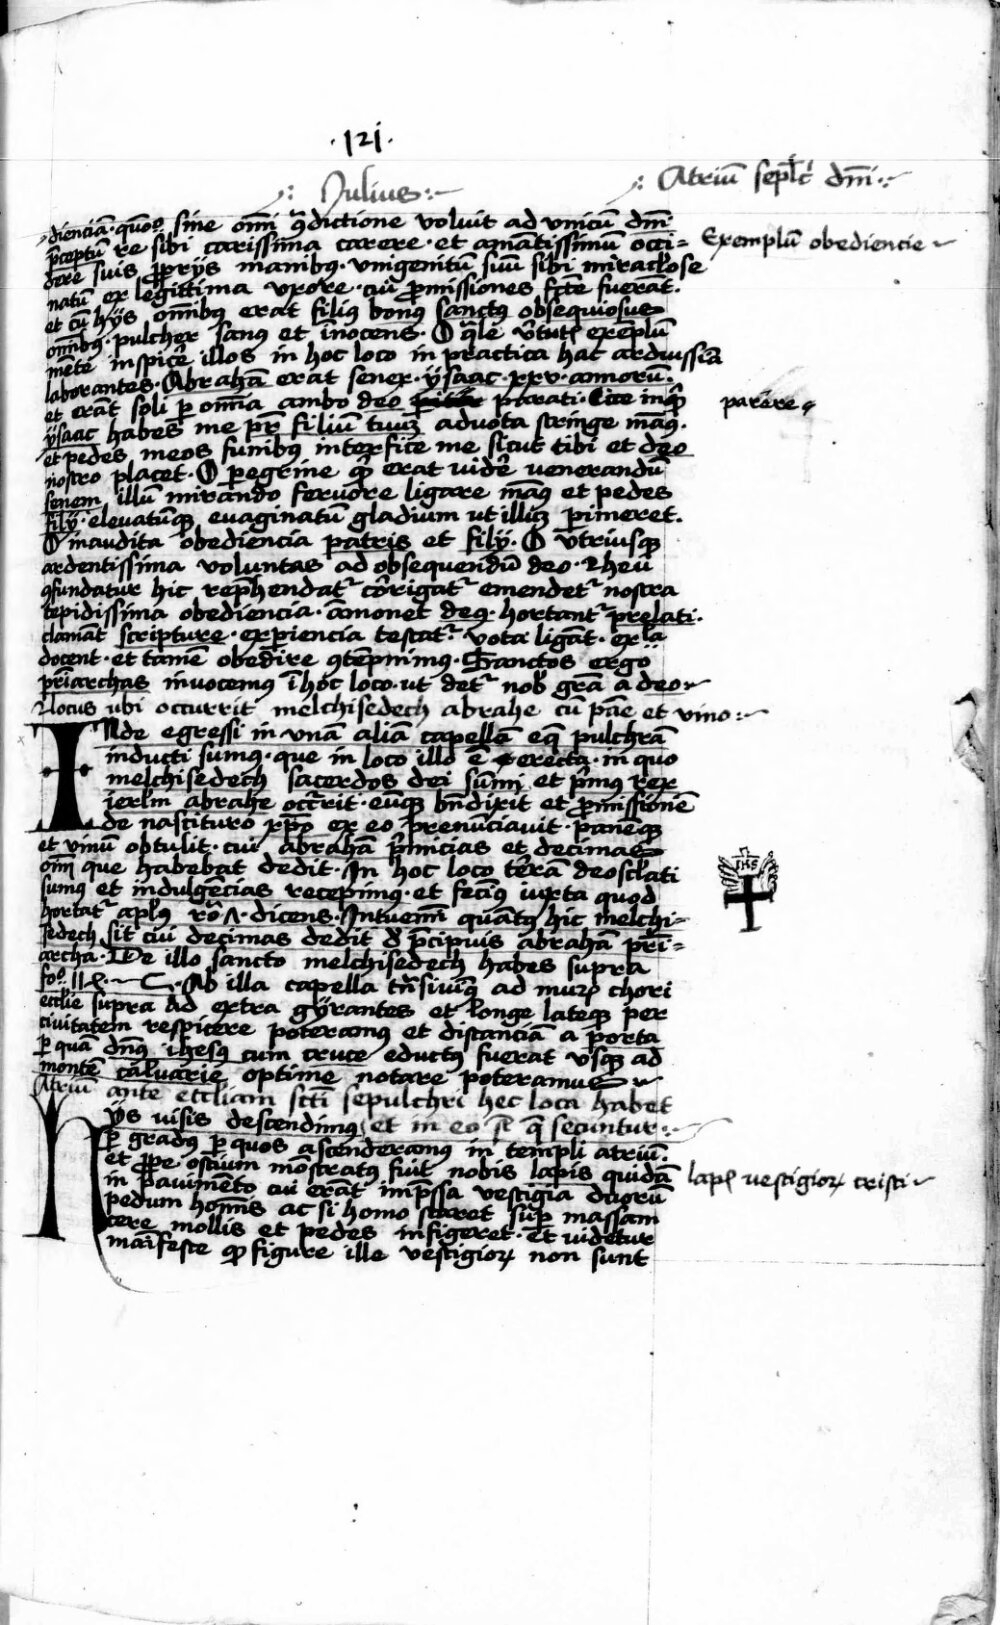 ·121·
Julius
Atriu᷃ sepl̃cͥ dn᷃i
dienciā· quō sine om̄i ꝯ̃dictione voluit ad vnicū dm̄
p̄ceptū re sibi carissima carere· et amātissimū occi=
Exemplū obediencie
dere suis ꝓprijs manibus· vnigenitū suū sibi miraclose
natū ex legittima vxore· cui ꝓmissiones fc̄te fuerāt·
et cū hijs om̄ibus erat filius bonus sanctus obsequiosus
om̄ibus· pulcher sanus et inocens· O q̃le v̄tutis exēplū
mēte inspicere illos in hoc loco in practica hac arduissīa
laborantes· Abrahā erat senex· ÿsaac· xxv· annorū·
et erāt soli ꝑ om̄ia ambo deo parati· Ecce inq̄
parere
ÿsaac habes me pr̄ filiū tuū aduota stringe man᷒·
et pedes meos funibus interfice me sicut tibi et deo
nostro placet· O ꝑegrine ꝙ erat videre venerandū
senem illū mirando feruore ligare man᷒ et pedes
filij· eleuatūqꝫ euaginatū gladium ut illū pimeret·
O inaudita obediencia patris et filij· O vtriusqꝫ
ardentissima voluntas ad obsequendū deo· Eheu
ꝯfundatur hic rep̄hendat᷑ corrigat᷑ emendet᷑ nostra
tepidissima obediencia· amonet deus· hortant᷑ prelati·
clamāt scripture· exꝑiencia testat᷑· vota ligāt· exp̄la
docent· et tamē obedire ꝯtēpnimus· Sanctos ergo
pr̄iarchas inuocemus ī hoc loco· ut det᷑ nob̄ grā a deo
Locus ubi occurrit melchisedech abrahe cū pāe et vino
Inde egressi in vnā aliā capellā eqꝫ pulchrā
inducti sumus· que in loco illo ē erecta· in quo
melchisedech sacerdos dei sūmi et p̄mus rex
ierlm̄ abrahe occ̄rrit· eūqꝫ bn̄dixit et ꝓmissionē
de nascituro xp̄o ex eo prenūciauit· panēqꝫ
et vinū obtulit· cui abrahā p̄micias et decimas
om̄i que habebat dedit· In hoc loco terrā deosclati
IHS
sumus et indulgēcias recepimus· et fecim᷒ iuxta quod
hortat᷑ apl̄us ro· dicens· Intuemī quāt᷒ hic melchi=
sedech sit cui decimas dedit d̄ p̄cipuis abrahā pri=
archa· De illo sancto melchisedech habes supra
Ab illa capella trāsiuim᷒ ad murū chori
eccl̄ie supra Ad extra gÿrantes et longe lateqꝫ per
ciuitatem respicere poteramus et distanciā a porta
ꝑ quā dn̄us ihesus cum cruce eductus fuerat vsqꝫ ad
montē caluarie optime notare poteramus
Atriū ante eccliam scti sepulchri hec loca habet
Hÿs visis descendimus et in eo q̄ secuntur
ꝑ gradus ꝑ quos ascenderamus in templi atriū·
et ꝓpe ostium mōstratus fuit nobis lapis quidā
lapis vestigiorꝝ cristi
in pauimēto cui erāt imp̄ssa vestigia duorū
pedum hom̄is ac si homo staret suꝑ massam
cere mollis et pedes infigeret· Et videtur
manifeste ꝙ figure ille vestigiorꝝ non sunt